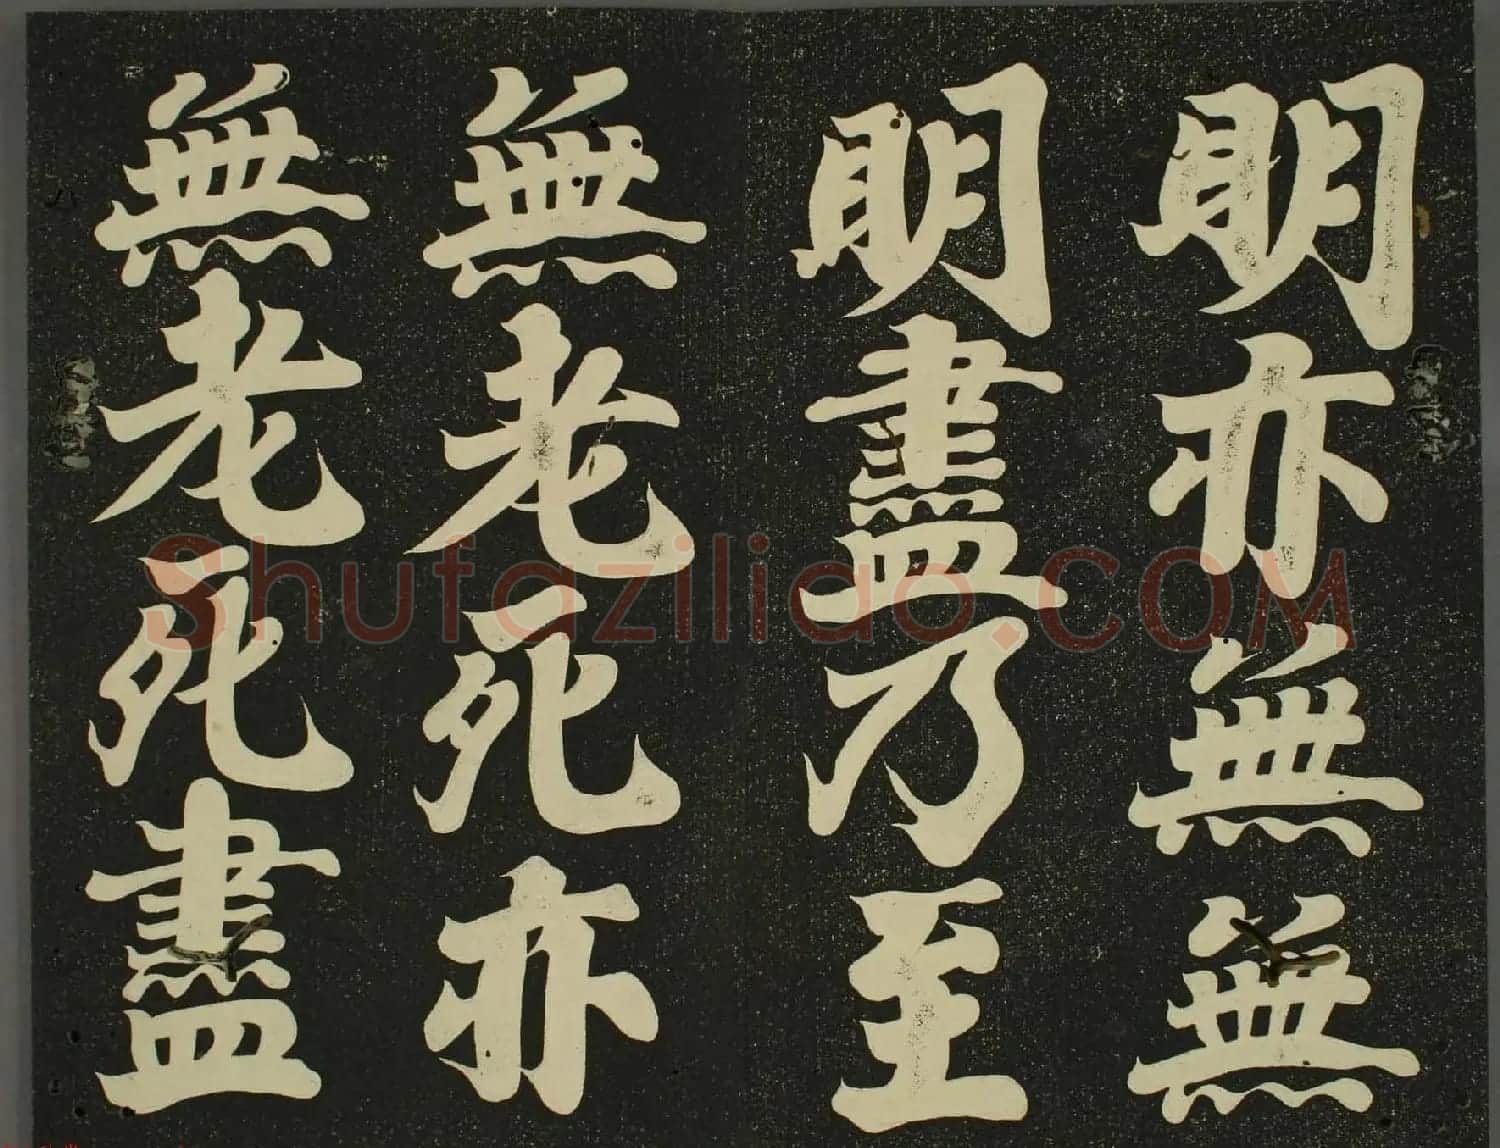 明亦無無
明盡乃至
無老死亦
無老死盡
Shufaziliao.COM